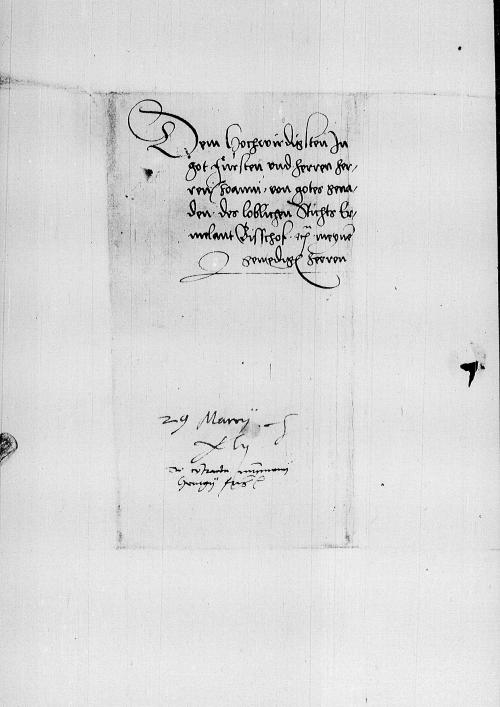 Dem Hochwirdigsten In
got fursten vnd herren her-
ren Joanni von gotes gena-
den des loblichen Stichts Er-
melant Bisschof etc meyne
genedigen herren
29 Marcij
xlij
de